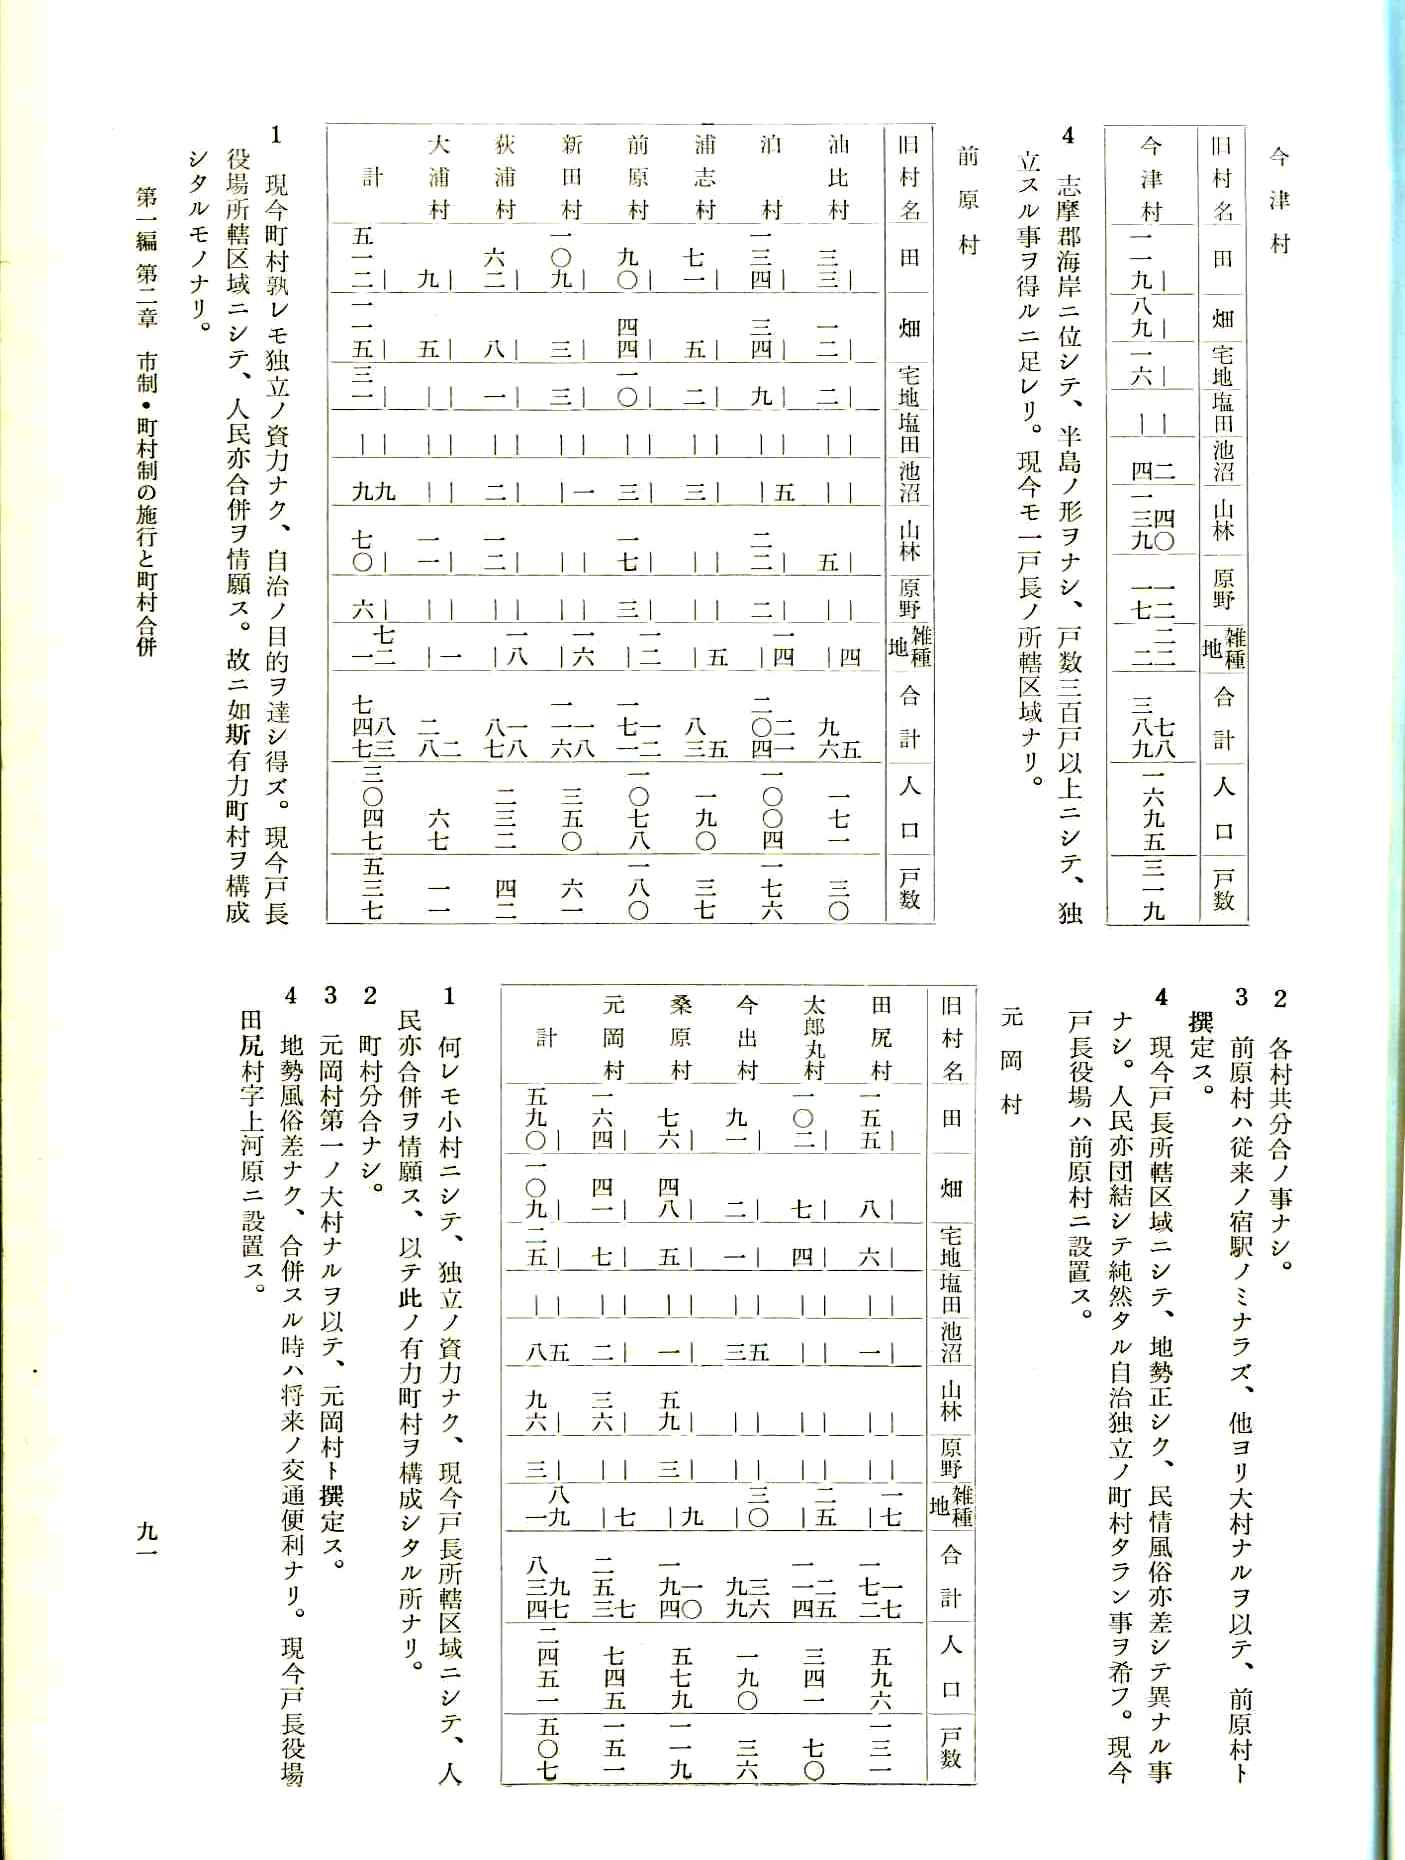 今津村
旧村名 田 畑 宅地 塩田 池沼 山林 原野 雑種地 合計 人口 戸数
今津村 一一九｜ 八九｜ 一六｜ ｜｜ 四 二 一三九 四〇 一七 一二 二 二二 三八九 七八 一六九五 三一九
4 志摩郡海岸ニ位シテ、半島ノ形ヲナシ、戸数三百戸以上ニシテ、独
立スル事ヲ得ルニ足レリ。現今モ一戸長ノ所轄区域ナリ。
前原村
旧村名 田 畑 宅地 塩田 池沼 山林 原野 雑種地 合計 人口 戸数
油比村 三三｜ 一二｜ 二｜ ｜｜ ｜｜ 五｜ ｜｜ ｜四 九六 五 一七一 三〇
泊村 一三四｜ 三四｜ 九｜ ｜｜ ｜五 二二｜ 二｜ ｜一四 二〇四 二一 一〇〇四 一七六
浦志村 七一｜ 五｜ 二｜ ｜｜ 三｜ ｜｜ ｜｜ ｜五 八三 五 一九〇 三七
前原村 九〇｜ 四四｜ 一〇｜ ｜｜ 三｜ 一七｜ 三｜ ｜一二 一七一 一二 一〇七八 一八〇
新田村 一〇九｜ 三｜ 三｜ ｜｜ ｜一 ｜｜ ｜｜ ｜一六 一一六 一八 三五〇 六一
荻浦村 六二｜ 八｜ 一｜ ｜｜ 二｜ 一二｜ ｜｜ ｜一八 八七 一八 二三二 四二
大浦村 九｜ 五｜ ｜｜ ｜｜ ｜｜ 一一｜ ｜｜ ｜一 二八 二 六七 一一
計 五一二｜ 一一五｜ 三一｜ ｜｜ 九 九 七〇｜ 六｜ 一 七二 七四七 八三 三〇四七 五三七
1 現今町村孰レモ独立ノ資力ナク、自治ノ目的ヲ達シ得ズ。現今戸長
役場所轄区域ニシテ、人民亦合併ヲ情願ス。故ニ如斯有力町村ヲ構成
シタルモノナリ。
2 各村共分合ノ事ナシ。
3 前原村ハ従来ノ宿駅ノミナラズ、他ヨリ大村ナルヲ以テ、前原村ト
撰定ス。
4 現今戸長所轄区域ニシテ、地勢正シク、民情風俗亦差シテ異ナル事
ナシ。人民亦団結シテ純然タル自治独立ノ町村タラン事ヲ希フ。現今
戸長役場ハ前原村ニ設置ス。
元岡村
旧村名 田 畑 宅地 塩田 池沼 山林 原野 雑種地 合計 人口 戸数
田尻村 一五五｜ 八｜ 六｜ ｜｜ 一｜ ｜｜ ｜｜ ｜一七 一七二 一七 五九六 一三一
太郎丸村 一〇二｜ 七｜ 四｜ ｜｜ ｜｜ ｜｜ ｜｜ ｜二五 一一四 二五 三四一 七〇
今出村 九一｜ 二｜ 一｜ ｜｜ 三 五 ｜｜ ｜｜ ｜三〇 九九 三六 一九〇 三六
桑原村 七六｜ 四八｜ 五｜ ｜｜ 一｜ 五九｜ 三｜ ｜九 一九四 一〇 五七九 一一九
元岡村 一六四｜ 四一｜ 七｜ ｜｜ 二｜ 三六｜ ｜｜ ｜七 二五三 七 七四五 一五一
計 五九〇｜ 一〇九｜ 二五｜ ｜｜ 八 五 九六｜ 三｜ 一 八九 八三四 九七 二四五一 五〇七
1 何レモ小村ニシテ、独立ノ資力ナク、現今戸長所轄区域ニシテ、人
民亦合併ヲ情願ス、以テ此ノ有力町村ヲ構成シタル所ナリ。
2 町村分合ナシ。
3 元岡村第一ノ大村ナルヲ以テ、元岡村ト撰定ス。
4 地勢風俗差ナク、合併スル時ハ将来ノ交通便利ナリ。現今戸長役場
田尻村字上河原ニ設置ス。
第一編 第二章 市制・町村制の施行と町村合併
九一